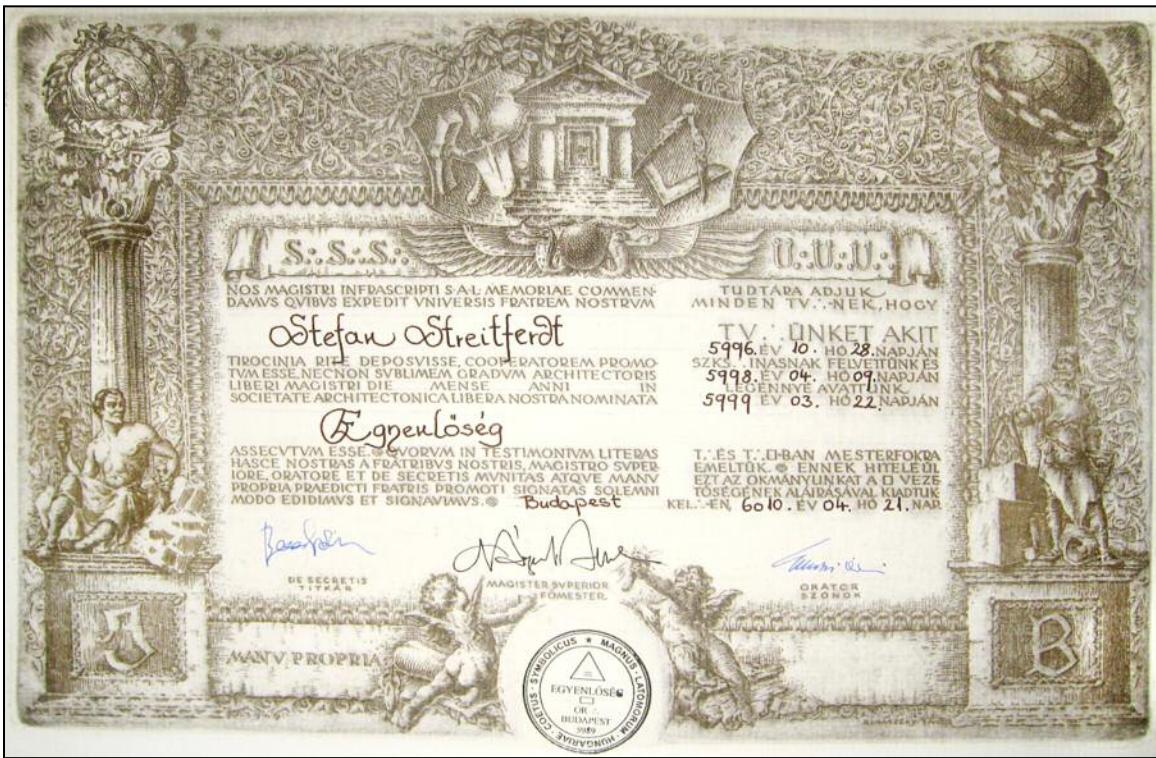 S∴S∴S∴
NOS MAGISTRI INFRASCRIPTI S·A·L· MEMORIAE COMMEN-
DAMVS QVIBVS EXPEDIT VNIVERSIS FRATREM NOSTRVM
Stefan Streitferdt
TIROCINIA RITE DEPOSVISSE, COOPERATOREM PROMO-
TVM ESSE, NECNON SVBLIMEM GRADVM ARCHITECTORIS
LIBERI MAGISTRI DIE MENSE ANNI IN
SOCIETATE ARCHITECTONICA LIBERA NOSTRA NOMINATA
Egyenlőség
ASSECVTVM ESSE. QVORVM IN TESTIMONIVM LITERAS
HASCE NOSTRAS A FRATRIBVS NOSTRIS, MAGISTRO SVPER-
IORE, ORATORE ET DE SECRETIS MVNITAS ATQVE MANV
PROPRIA PRAEDICTI FRATRIS PROMOTI SIGNATAS SOLEMNI
MODO EDIDIMVS ET SIGNAVIMVS. Budapest
Ü∴U∴U∴
TUDTÁRA ADJUK
MINDEN TV∴-NEK, HOGY
TV∴ÜNKET AKIT
5996. ÉV 10. HÓ 28. NAPJÁN
SZKS∴ INASNAK FELVETTÜNK ÉS
5998. ÉV 04. HÓ 09. NAPJÁN
LEGÉNNYÉ AVATTUNK
5999 ÉV 03. HÓ 22. NAPJÁN
T∴ ÉS T∴ □-BAN MESTERFOKRA
EMELTÜK. ENNEK HITELÉÜL
EZT AZ OKMÁNYUNKAT A □ VEZE
TŐSÉGÉNEK ALÁIRÁSÁVAL KIADTUK
KEL∴-EN, 6010. ÉV 04. HÓ 21. NAP.
DE SECRETIS
TITKÁR
MAGISTER SVPERIOR
FŐMESTER
ORATOR
SZÓNOK
J
MANV PROPRIA
B
MAGNUS · LATOMORUM · HUNGARIAE · COETUS · SYMBOLICUS
EGYENLŐSÉG
OR∴
BUDAPEST
5989